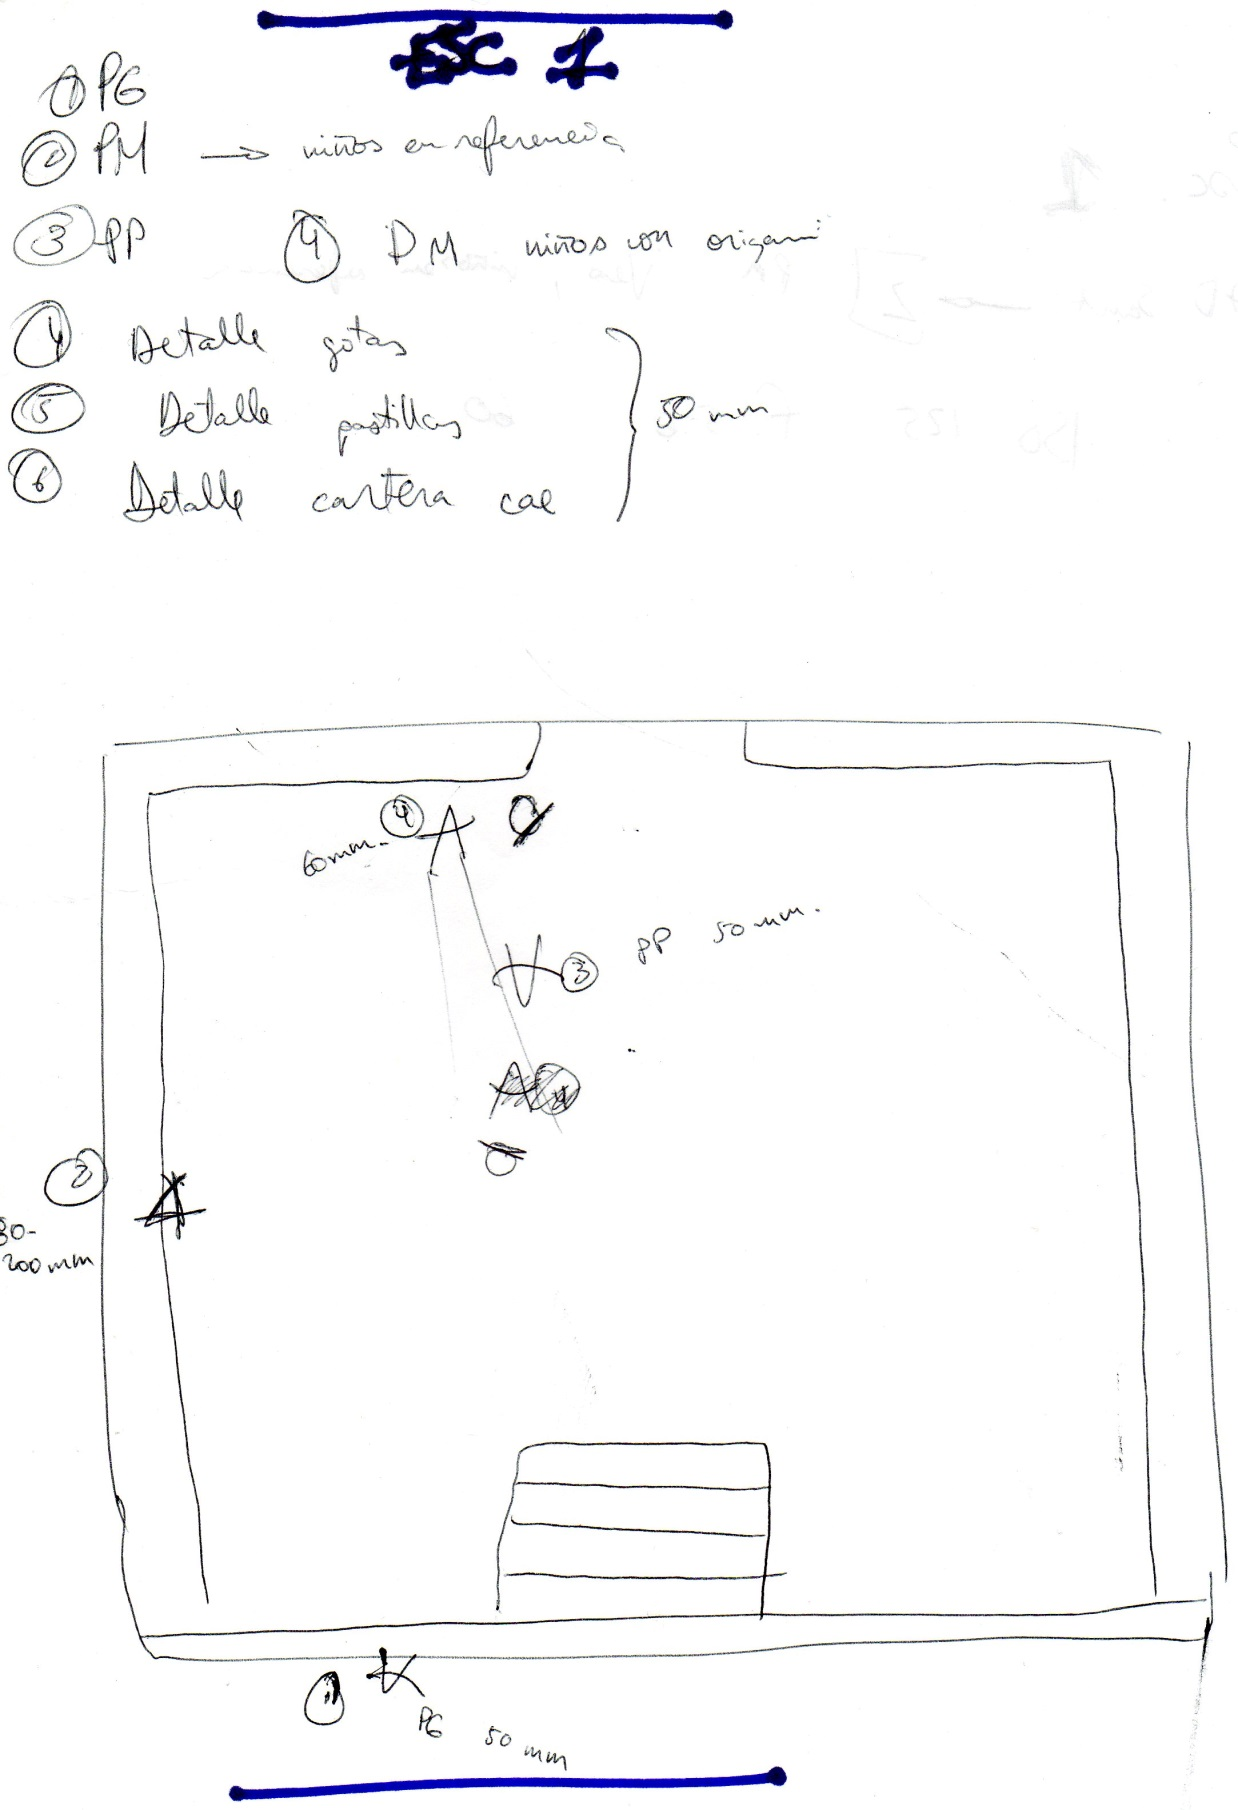 ESC 1
① PG
② PM → niños en referencia
③ PP ④ PM niños con origami
④ Detalle gotas
⑤ Detalle pastillas
⑥ Detalle cartera cae
50 mm
④
60mm.
③ PP 50mm.
②
80-
200mm
①
PG 50mm